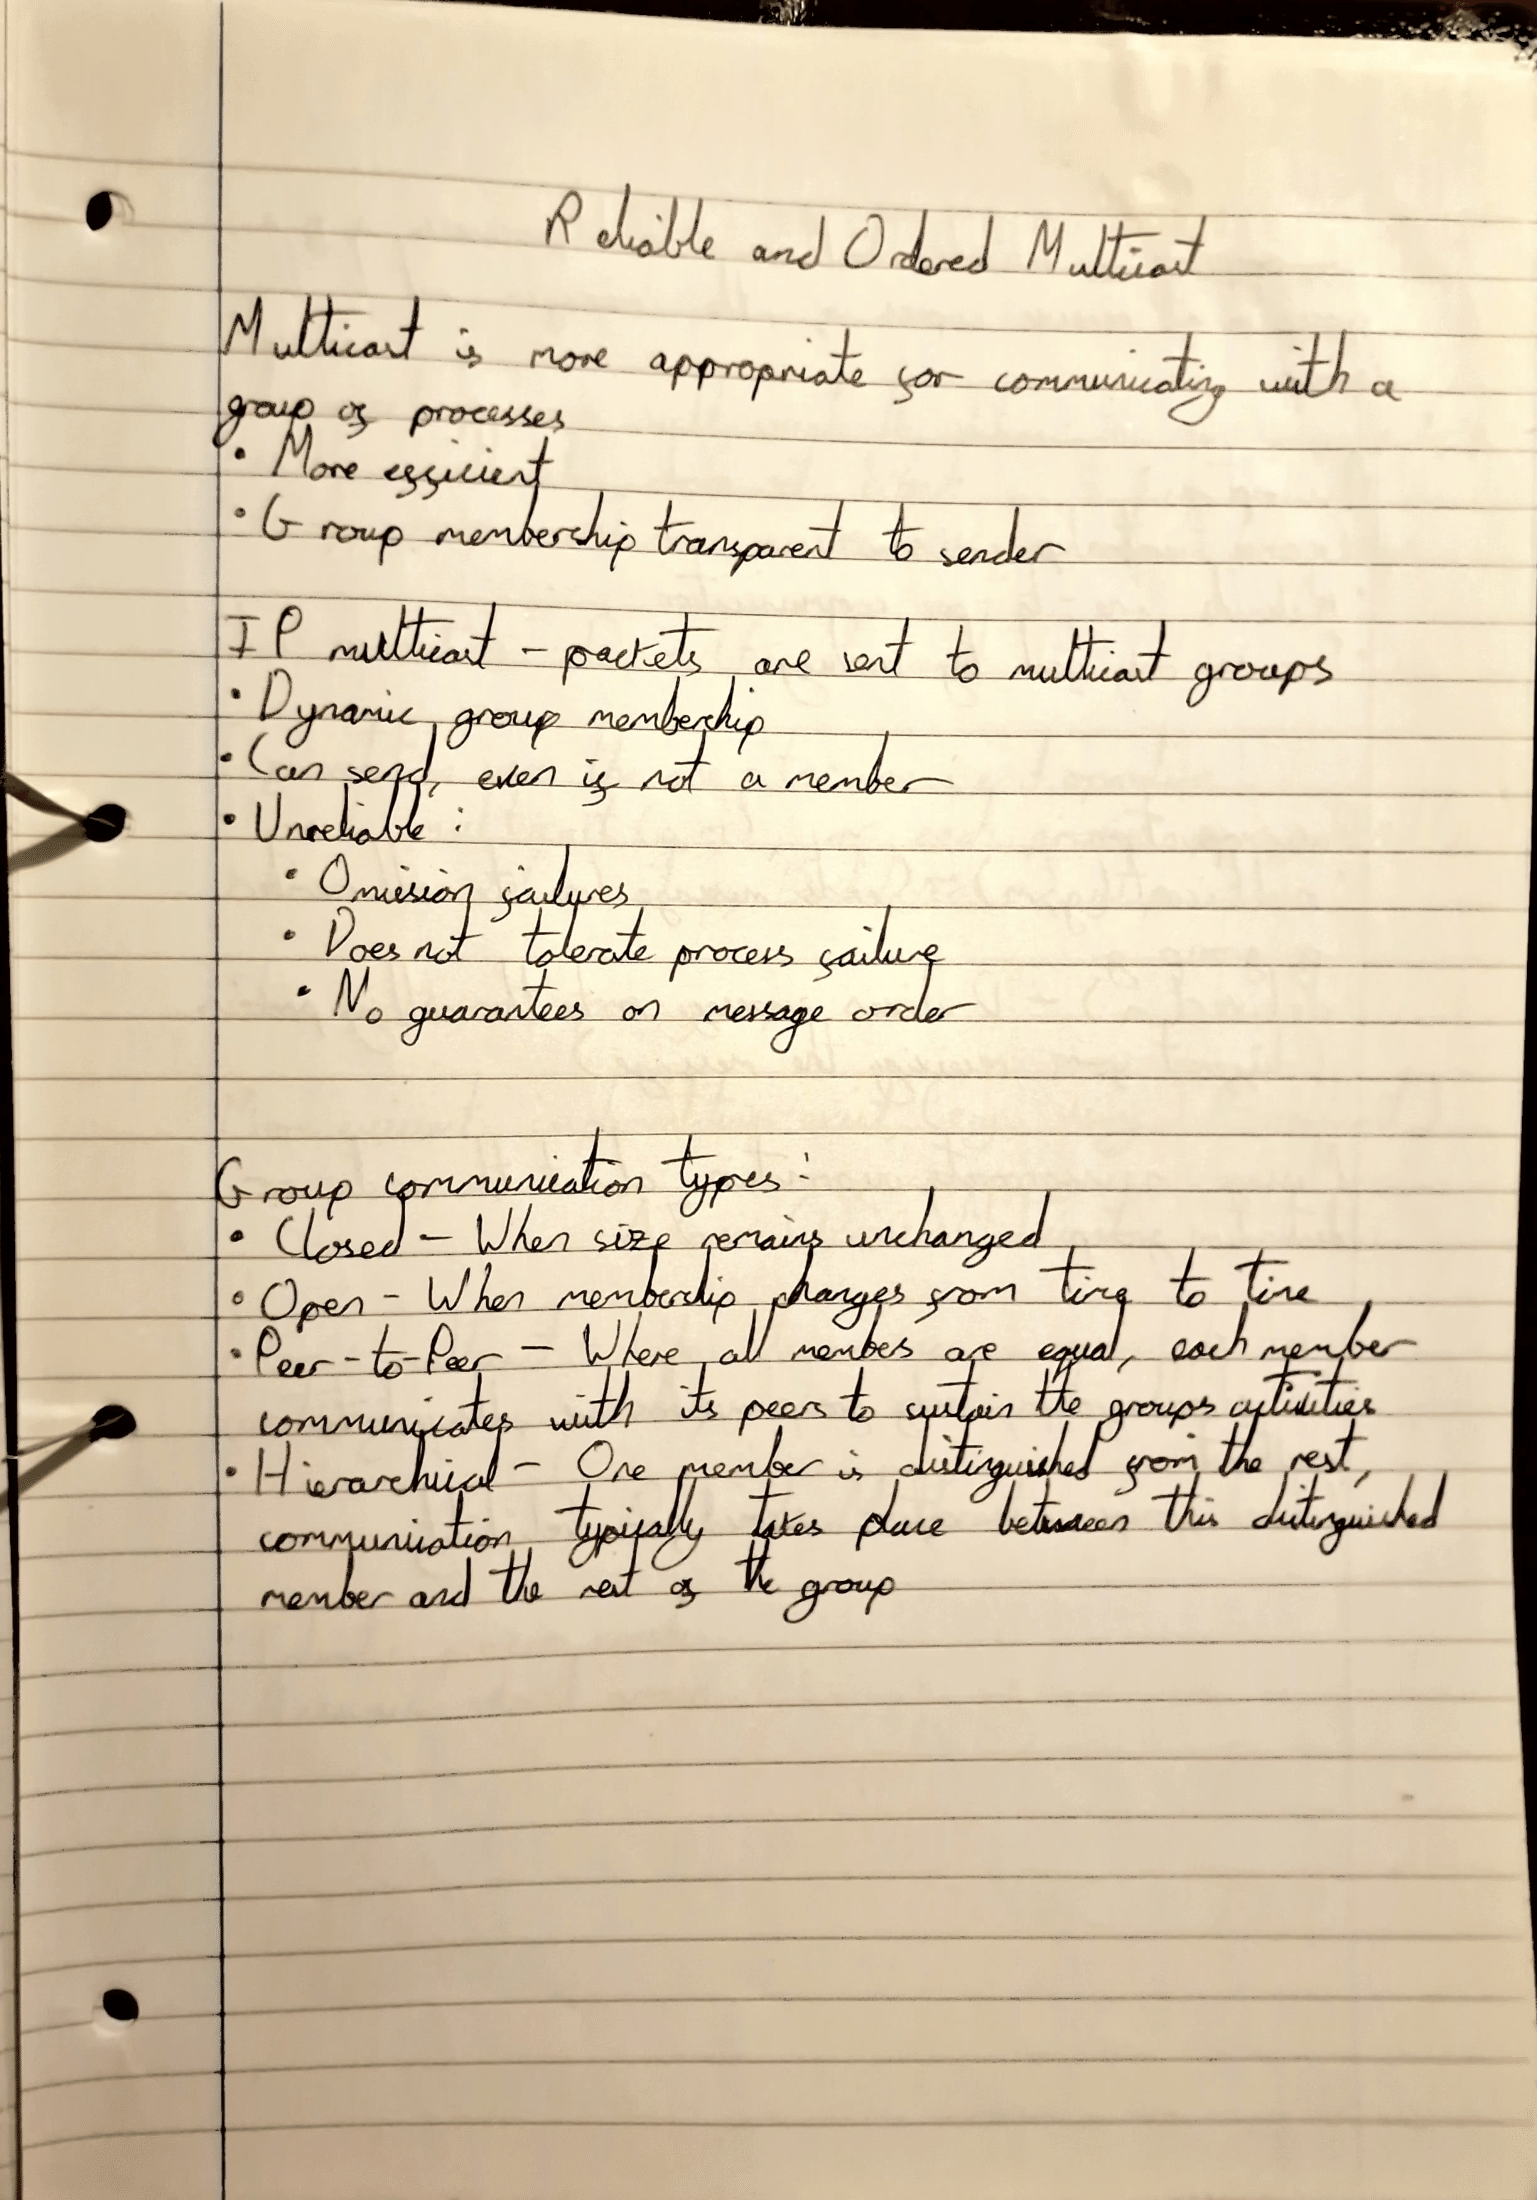 Reliable and Ordered Multicast
Multicast is more appropriate for communicating with a
group of processes
• More efficient
• Group membership transparent to sender
IP multicast - packets are sent to multicast groups
• Dynamic group membership
• Can send, even if not a member
• Unreliable:
• Omission failures
• Does not tolerate process failure
• No guarantees on message order
Group communication types:
• Closed - When size remains unchanged
• Open - When membership changes from time to time
• Peer-to-Peer - Where all members are equal, each member
communicates with its peers to sustain the groups activities
• Hierarchical - One member is distinguished from the rest,
communication typically takes place between this distinguished
member and the rest of the group